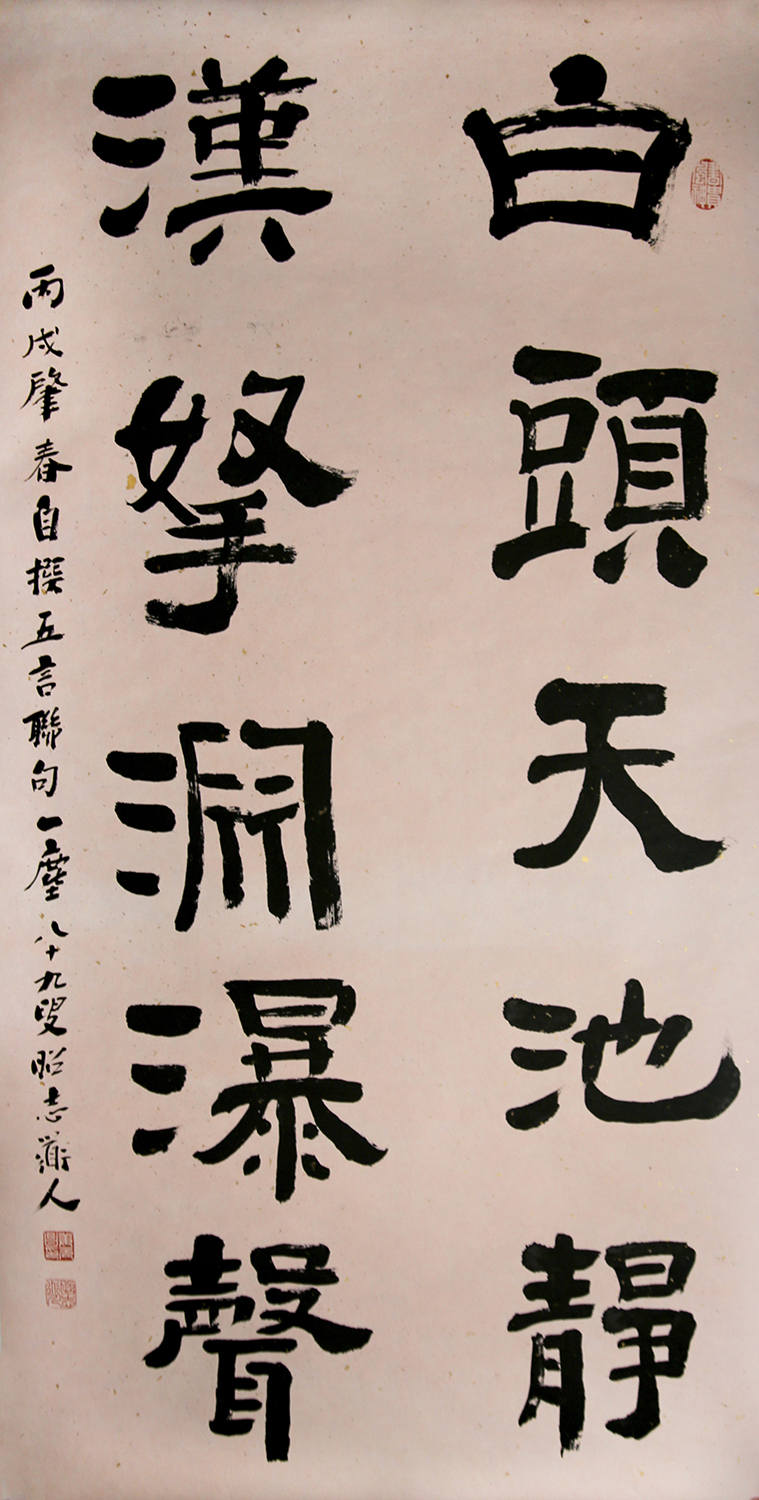 白頭天池靜
漢拏淵瀑聲
丙戌肇春自撰五言聯句一塵八十九叟昭志薌人